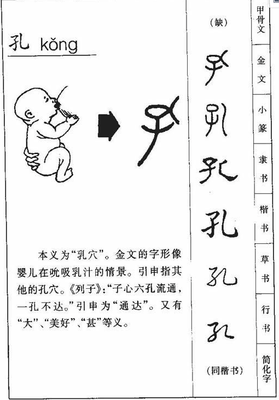 孔 kǒng
本义为“乳穴”。金文的字形像
婴儿在吮吸乳汁的情景。引申指其
他的孔穴。《列子》：“子心六孔流通，
一孔不达。”引申为“通达”。又有
“大”、“美好”、“甚”等义。
（缺）
孔
孔
孔
孔
孔
（同楷书）
甲骨文
金文
小篆
隶书
楷书
草书
行书
简化字